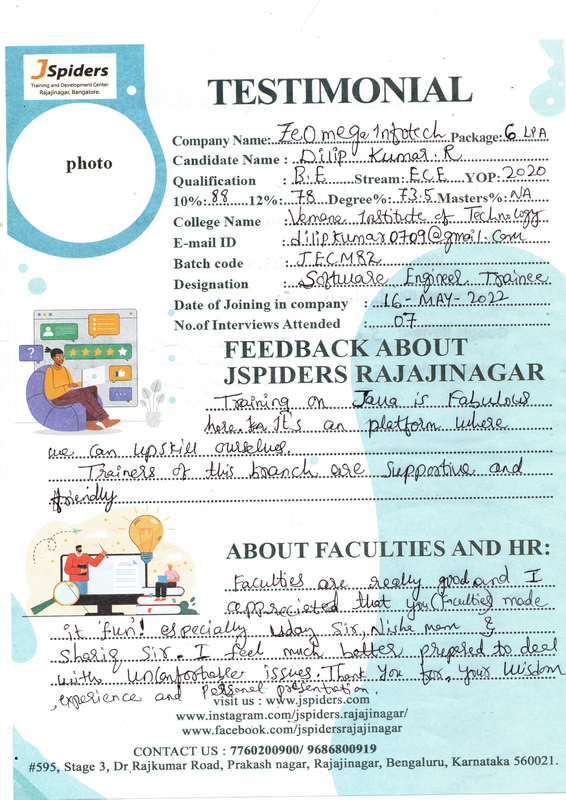 JSpiders
Training and Development Center
Rajajinagar, Bangalore.
TESTIMONIAL
photo
Company Name: ZeOmega Infotech Package: 6 LPA
Candidate Name : Dilip Kumar. R
Qualification : B.E Stream: ECE YOP: 2020
10%: 88 12%: 78 Degree%: 73.5 Masters%: NA
College Name : Vemana Institute of Technology
E-mail ID : dilipkumar0709@gmail.com
Batch code : JECM82
Designation : Software Engineer Trainee
Date of Joining in company : 16-MAY-2022
No.of Interviews Attended : 07
FEEDBACK ABOUT
JSPIDERS RAJAJINAGAR
Training on Java is Fabulous
here. It's an platform where
we can upskill ourselves.
Trainers of this branch are Supportive and
friendly
ABOUT FACULTIES AND HR:
Faculties are really good and I
apprecieted that you (Faculties) made
it 'fun'! especially Uday Sir, Nisha mam &
Shariq Sir. I feel much better prepared to deal
with Uncomfortable issues. Thank You for, your Wisdom
, experience and Personal presentation.
visit us : www.jspiders.com
www.instagram.com/jspiders.rajajinagar/
www.facebook.com/jspidersrajajinagar
CONTACT US : 7760200900/ 9686800919
#595, Stage 3, Dr Rajkumar Road, Prakash nagar, Rajajinagar, Bengaluru, Karnataka 560021.